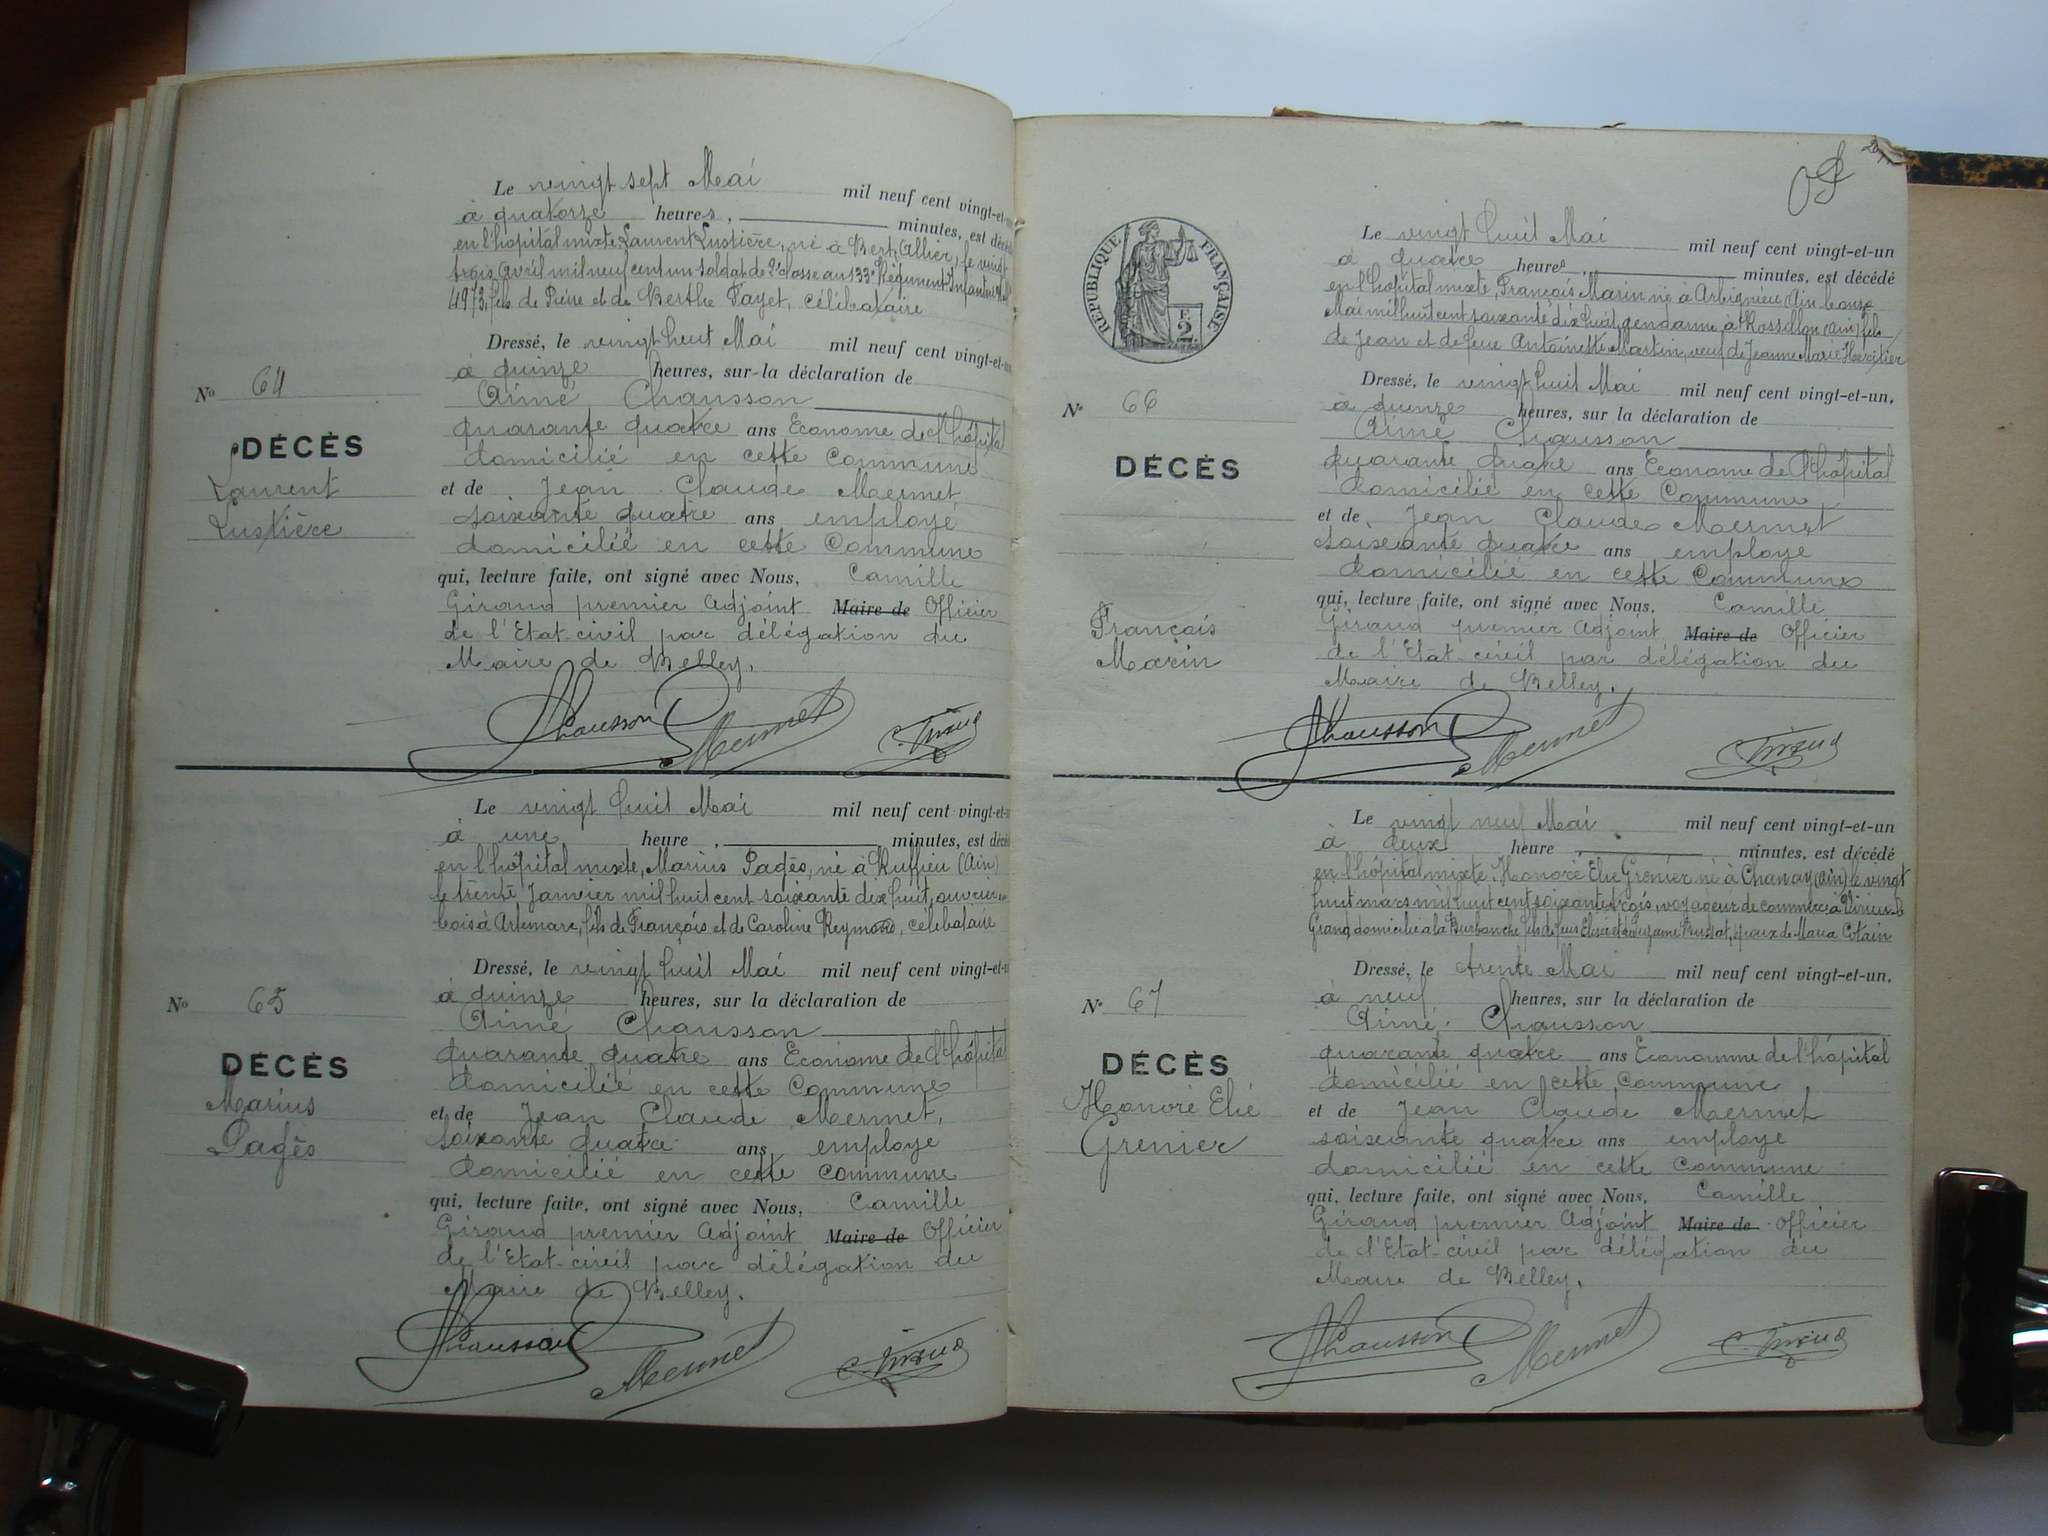 Le vingt sept Mai mil neuf cent vingt-et-un
à quatorze heures, minutes, est décédé
en l'hôpital mixte Laurent Lustière, né à Bert, Allier, le vingt
trois Avril mil neuf cent un soldat de 2e classe au 133e Régiment Infanterie
4973, fils de Pierre et de Berthe Payet, célibataire
Dressé, le vingt huit Mai mil neuf cent vingt-et-un
à quinze heures, sur la déclaration de
Aimé Chausson
quarante quatre ans Econome de l'hôpital
domicilié en cette Commune
et de Jean Claude Mermet
soixante quatre ans employé
domicilié en cette Commune
qui, lecture faite, ont signé avec Nous, Camille
Giraud premier Adjoint Maire de Officier
de l'Etat-civil par délégation du
Maire de Belley.
Chausson Mermet C. Giraud
No 64
DÉCÈS
Laurent
Lustière
Le vingt huit Mai mil neuf cent vingt-et-un
à une heure, minutes, est décédé
en l'hôpital mixte, Marius Pagès, né à Ruffieu (Ain)
le trente Janvier mil huit cent soixante dix huit, ouvrier en
bois à Artemare, fils de François et de Caroline Reymond, célibataire
Dressé, le vingt huit Mai mil neuf cent vingt-et-un
à quinze heures, sur la déclaration de
Aimé Chausson
quarante quatre ans Econome de l'hôpital
domicilié en cette Commune
et de Jean Claude Mermet,
soixante quatre ans employe
domicilié en cette commune
qui, lecture faite, ont signé avec Nous, Camille
Giraud premier Adjoint Maire de Officier
de l'Etat-civil par délégation du
Maire de Belley.
Chausson Mermet C. Giraud
No 65
DÉCÈS
Marius
Pagès
RÉPUBLIQUE FRANÇAISE
F.
2
Le vingt huit Mai mil neuf cent vingt-et-un
à quatre heures, minutes, est décédé
en l'hôpital mixte, François Marin né à Arbignieu (Ain le onze
Mai mil huit cent soixante dix huit, gendarme à Rossillon (Ain) fils
de Jean et de feue Antoinette Martin, veuf de Jeanne Marie Héritier
Dressé, le vingt huit Mai mil neuf cent vingt-et-un.
à quinze heures, sur la déclaration de
Aimé Chausson
quarante quatre ans Econome de l'hôpital
domicilié en cette Commune
et de Jean Claude Mermet
soixante quatre ans employe
domicilié en cette Commune
qui, lecture faite, ont signé avec Nous, Camille
Giraud premier Adjoint Maire de Officier
de l'Etat-civil par délégation du
Maire de Belley.
Chausson Mermet C. Giraud
No 66
DÉCÈS
François
Marin
Le vingt neuf Mai mil neuf cent vingt-et-un
à deux heure, minutes, est décédé
en l'hôpital mixte, Honoré Elie Grenier né à Chanay (Ain) le vingt
huit mars mil huit cent soixante trois, voyageur de commerce à Virieu-le
Grand, domicilié à la Burbanche fils de feus Elisée et de Suzanne, époux de Maria Cotain
Dressé, le trente Mai mil neuf cent vingt-et-un.
à neuf heures, sur la déclaration de
Aimé Chausson
quarante quatre ans Econome de l'hôpital
domicilié en cette Commune
et de Jean Claude Mermet
soixante quatre ans employe
domicilié en cette Commune
qui, lecture faite, ont signé avec Nous, Camille
Giraud premier Adjoint Maire de Officier
de l'Etat-civil par délégation du
Maire de Belley.
Chausson Mermet C. Giraud
No 67
DÉCÈS
Honoré Elie
Grenier